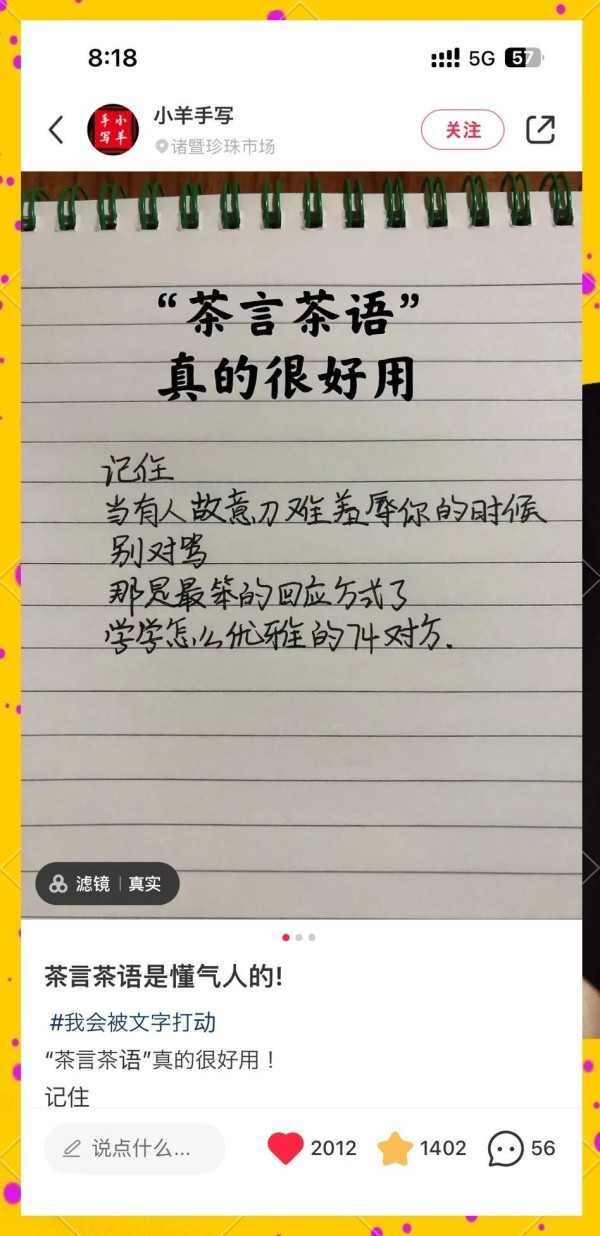 8:18
5G
57
手小
写羊
小羊手写
诸暨珍珠市场
关注
“茶言茶语”
真的很好用
记住
当有人故意刀难羞辱你的时候
别对骂
那是最笨的回应方式了
学学怎么优雅的74对方.
滤镜 | 真实
茶言茶语是懂气人的!
#我会被文字打动
“茶言茶语”真的很好用！
记住
说点什么...
2012
1402
56